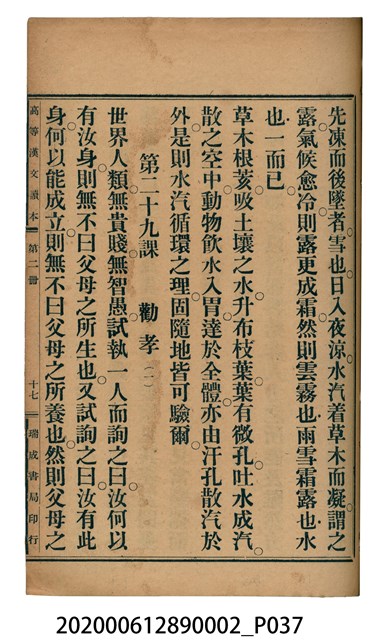 先凍而後墜者。雪也。日入夜涼。水汽着草木而凝。謂之
露。氣候愈冷。則露更成霜。然則雲霧也。雨雪霜露也。水
也。一而已。
草木根荄。吸土壤之水。升布枝葉。葉有微孔。吐水成汽。
散之空中。動物飲水入胃。達於全體。亦由汗孔散汽於
外。是則水汽循環之理。固隨地皆可驗爾。
第二十九課　勸孝（一）
世界人類。無貴賤。無智愚。試執一人而詢之曰。汝何以
有汝身。則無不曰父母之所生也。又試詢之曰。汝有此
身。何以能成立。則無不曰父母之所養也。然則父母之
高等漢文讀本　第二冊　十七　瑞成書局印行
202000612890002_P037